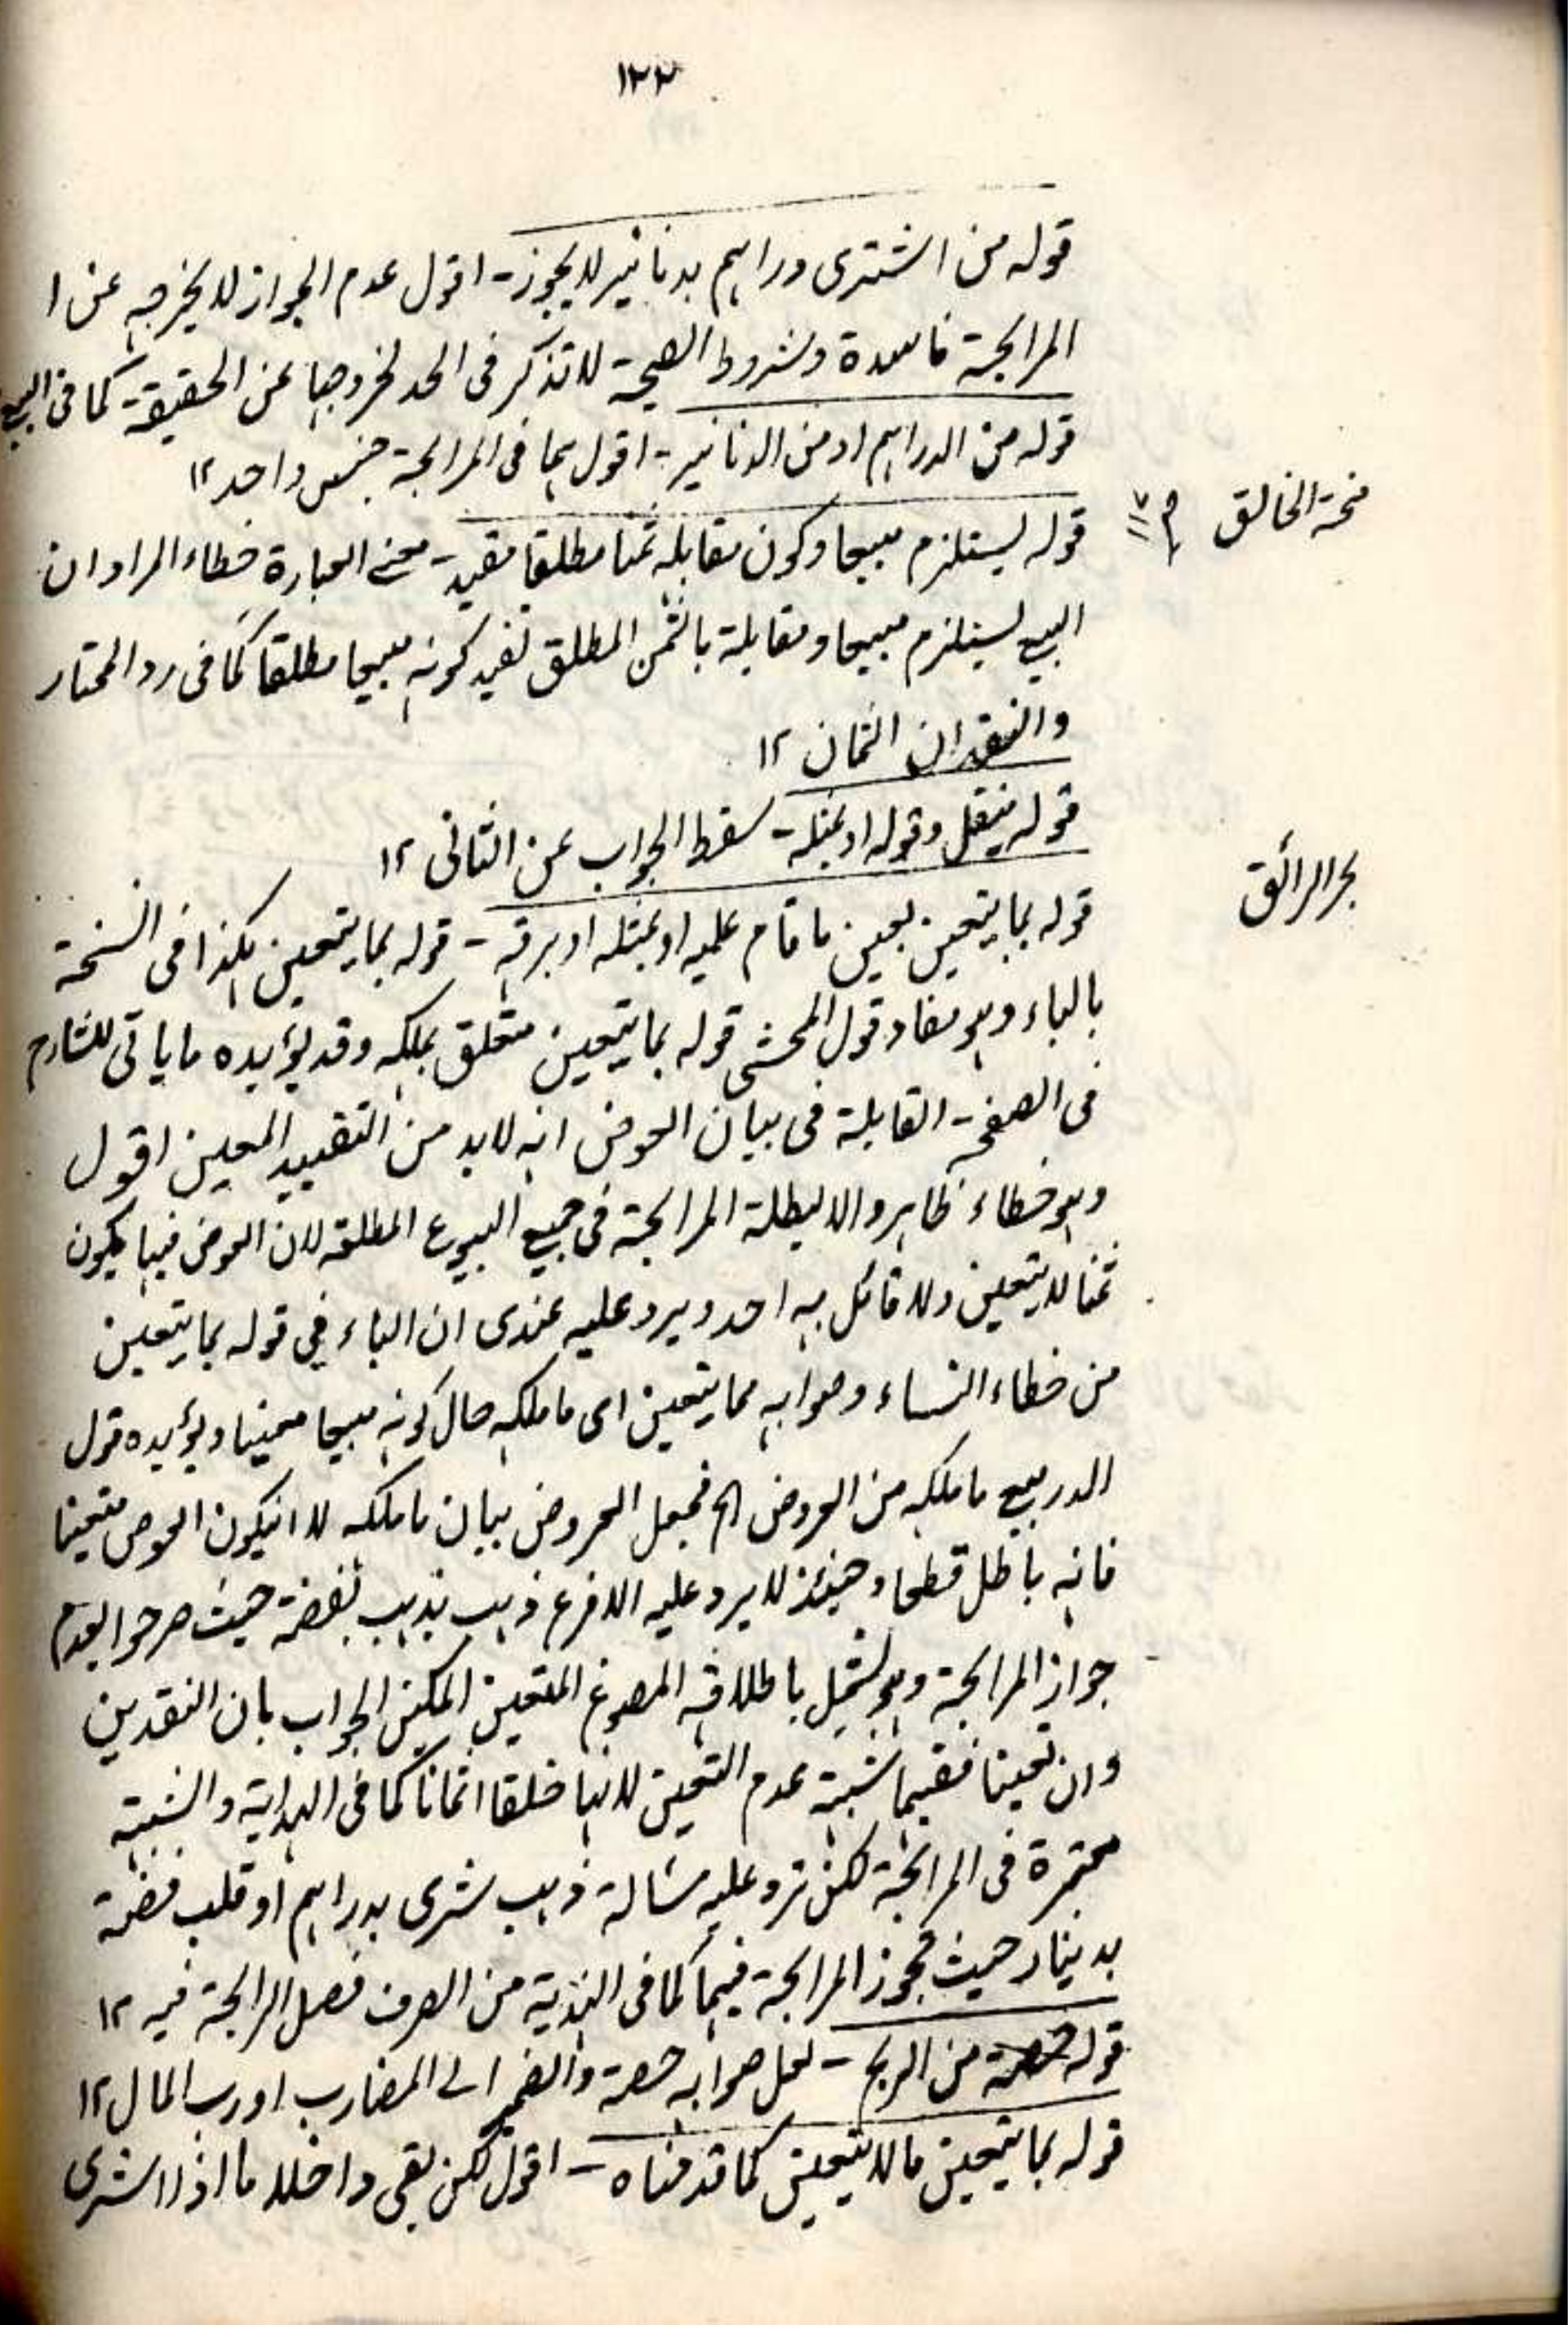 ١٢٢
قوله من اشترى دراهم بدنانير لايجوز - اقول عدم الجواز لا يخرجه عن ا
المرابحة فاسدة وشروط الصحة لا تذكر فى الحد لخروجها عن الحقيقة كما فى البيع
قوله من الدراهم او من الدنانير - اقول هما فى المرابحة جنس واحد ١٢
منحة الخالق
قوله يستلزم مبيعا وكون مقابله ثمنا مطلقا مفيد - معنے العبارة خطاء المراد ان
البيع يستلزم مبيعا ومقابلة بالثمن المطلق تفيد كونه مبيعا مطلقا كما فى رد المحتار
والنقدان اثمان ١٢
قوله ينقل وقوله او بمثله - سقط الجواب عن الثانى ١٢
بحر الرائق
قوله بما يتعين بعين ما قام عليه او بمثله او برقمه - قوله بما يتعين هكذا فى النسخة
بالباء وهو مفاد قول المحشى قوله بما يتعين متعلق بملكه وقد يؤيده ما ياتى للشارح
فى الصفحة القابلة فى بيان العوض انه لا بد من التقييد المعين اقول
وهو خطاء ظاهر والا ليطلة المرابحة فى جميع البيوع المطلقة لان العوض فيها يكون
ثمنا لا يتعين ولا قائل به احد ويرد عليه عندى ان الباء فى قوله بما يتعين
من خطاء النساء وصوابه مما يتعين اى ما ملكه حال كونه مبيعا معينا ويؤيده قول
الدر بيع ما ملكه من العروض الخ فجعل العروض بيان ما ملكه لا ان يكون العوض متعينا
فانه باطل قطعا وحينئذ لا يرد عليه الا فرع ذهب بذهب بفضة حيث صرحوا بعدم
جواز المرابحة وهو يشمل باطلاقه المصوغ المتعين الممكن الجواب بان النقدين
وان تعينا ففيهما شبهة عدم التعين لانها خلقا اثمانا كما فى الهداية والشبهة
معتبرة فى المرابحة لكن ترد عليه مسالة ذهب شرى بدراهم او قلب فضة
بدينار حيث تجوز المرابحة فيهما كما فى الهندية من الصرف فصل المرابحة فيه ١٢
قوله من الربح - لعل صوابه حصة والضمير الى المضارب او رب المال ١٢
قوله بما يتعين ما لا يتعين كما قدمناه - اقول لكن بقى داخلا ما اذا اشترى